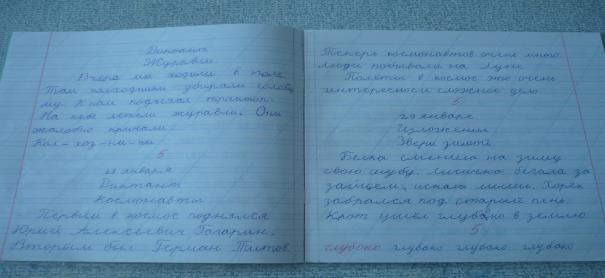 Диктант
Журавли
Вчера мы ходили в поле
Там колхозники убирали солому
му. К нам подъехал трактор.
На юг летели журавли. Они
жалобно кричали.
Кол-хоз-ни-ки
5
28 января
Диктант
Космонавты
Первый в космос поднялся
Юрий Алексеевич Гагарин.
Вторым был Герман Титов.
Теперь космонавтов очень много
люди побывали на Луне
Полеты в космос это очень
интересное и сложное дело
5
29 января
Изложение
Звери зимой.
Белка сменила на зиму
свою шубу. Лисичка бегала за
зайцем, искала мышь. Хорек
забрался под старый пень.
Крот ушел глубоко в землю
5
глубоко глубоко глубоко глубоко